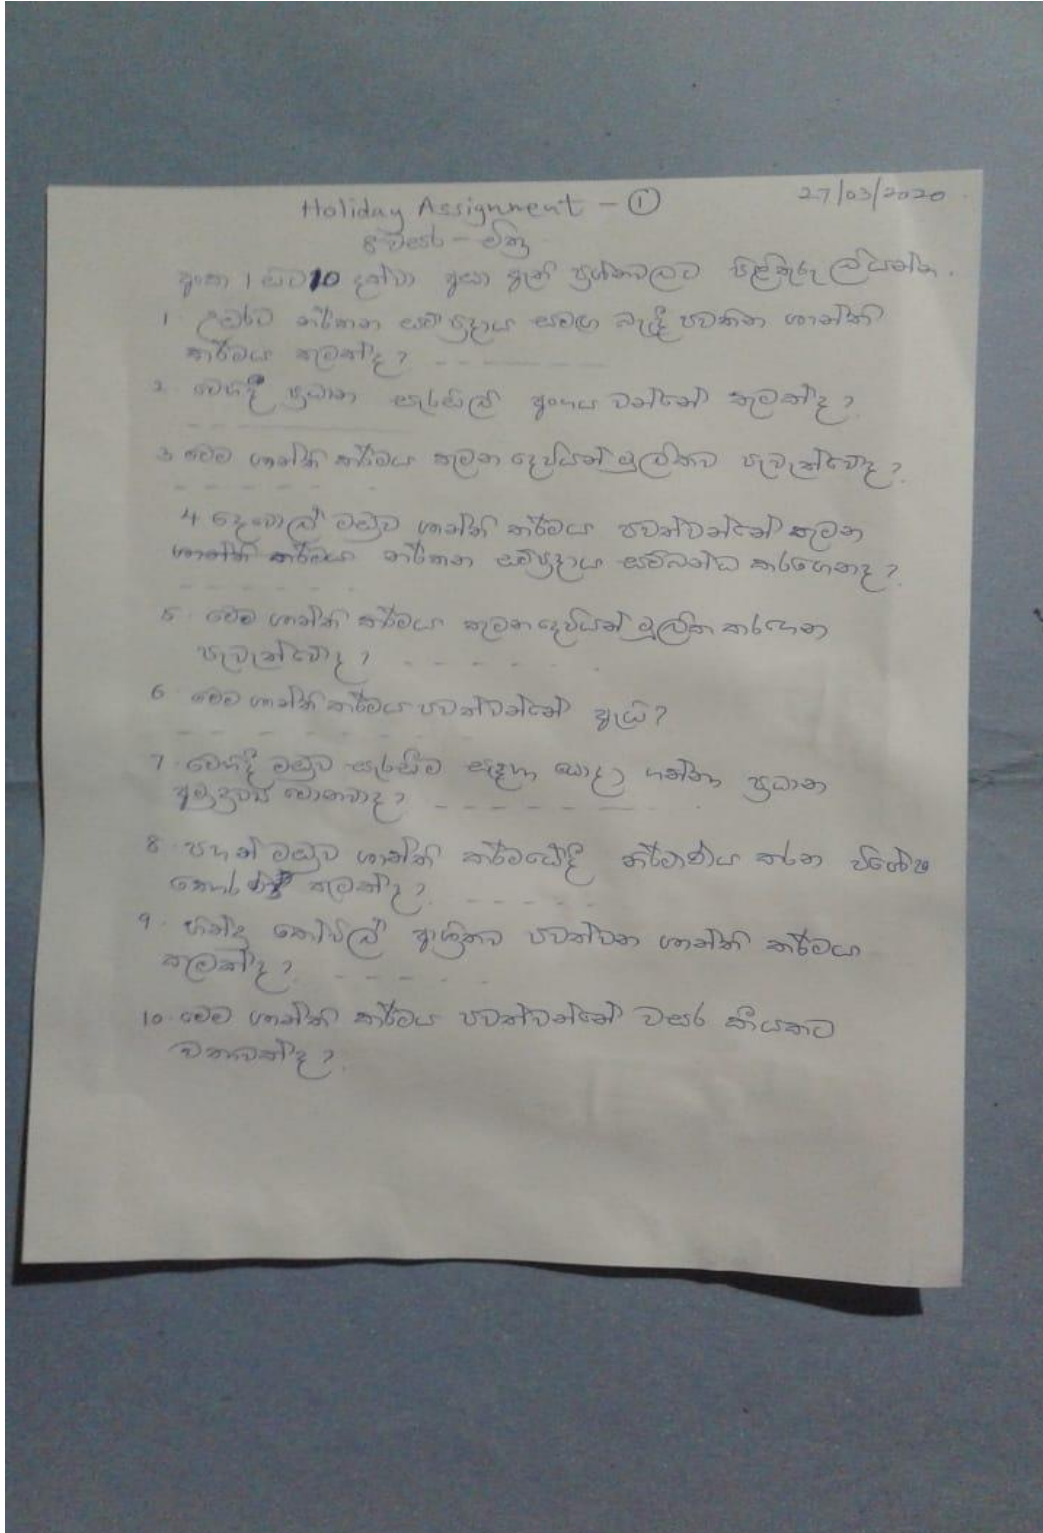 Holiday Assignment - ①
27/03/2020
8 වසර - චිත්‍ර
අංක 1 සිට 10 දක්වා අසා ඇති ප්‍රශ්නවලට පිළිතුරු ලියන්න.
1. උඩරට නර්තන සම්ප්‍රදාය සමඟ බැඳී පවතින ශාන්ති
කර්මය කුමක්ද? - - - - - - - -
2. මෙහිදී ප්‍රධාන සැරසිලි අංගය වන්නේ කුමක්ද?
- - - - - - - -
3. මෙම ශාන්ති කර්මය කුමන දෙවියන් මූලිකව පැවැත්වේද?
- - - - - -
4. දෙවොල් මඩුව ශාන්ති කර්මය පවත්වන්නේ කුමන
ශාන්ති කර්මය නර්තන සම්ප්‍රදාය සම්බන්ධ කරගෙනද?
- - - - - -
5. මෙම ශාන්ති කර්මය කුමන දෙවියන් මූලික කරගෙන
පැවැත්වේද? - - - - - - -
6. මෙම ශාන්ති කර්මය පවත්වන්නේ ඇයි?
- - - - - - - -
7. මෙහිදී මඩුව සැරසීම සඳහා යොදා ගන්නා ප්‍රධාන
අමුද්‍රව්‍ය මොනවාද? - - - - - - - - -
8. පහන් මඩුව ශාන්ති කර්මයේදී නිර්මාණය කරන විශේෂ
තොරණ කුමක්ද? - - - - - -
9. හින්දු කෝවිල් ආශ්‍රිතව පවත්වන ශාන්ති කර්මය
කුමක්ද? - - - - - -
10. මෙම ශාන්ති කර්මය පවත්වන්නේ වසර කීයකට
වතාවක්ද?